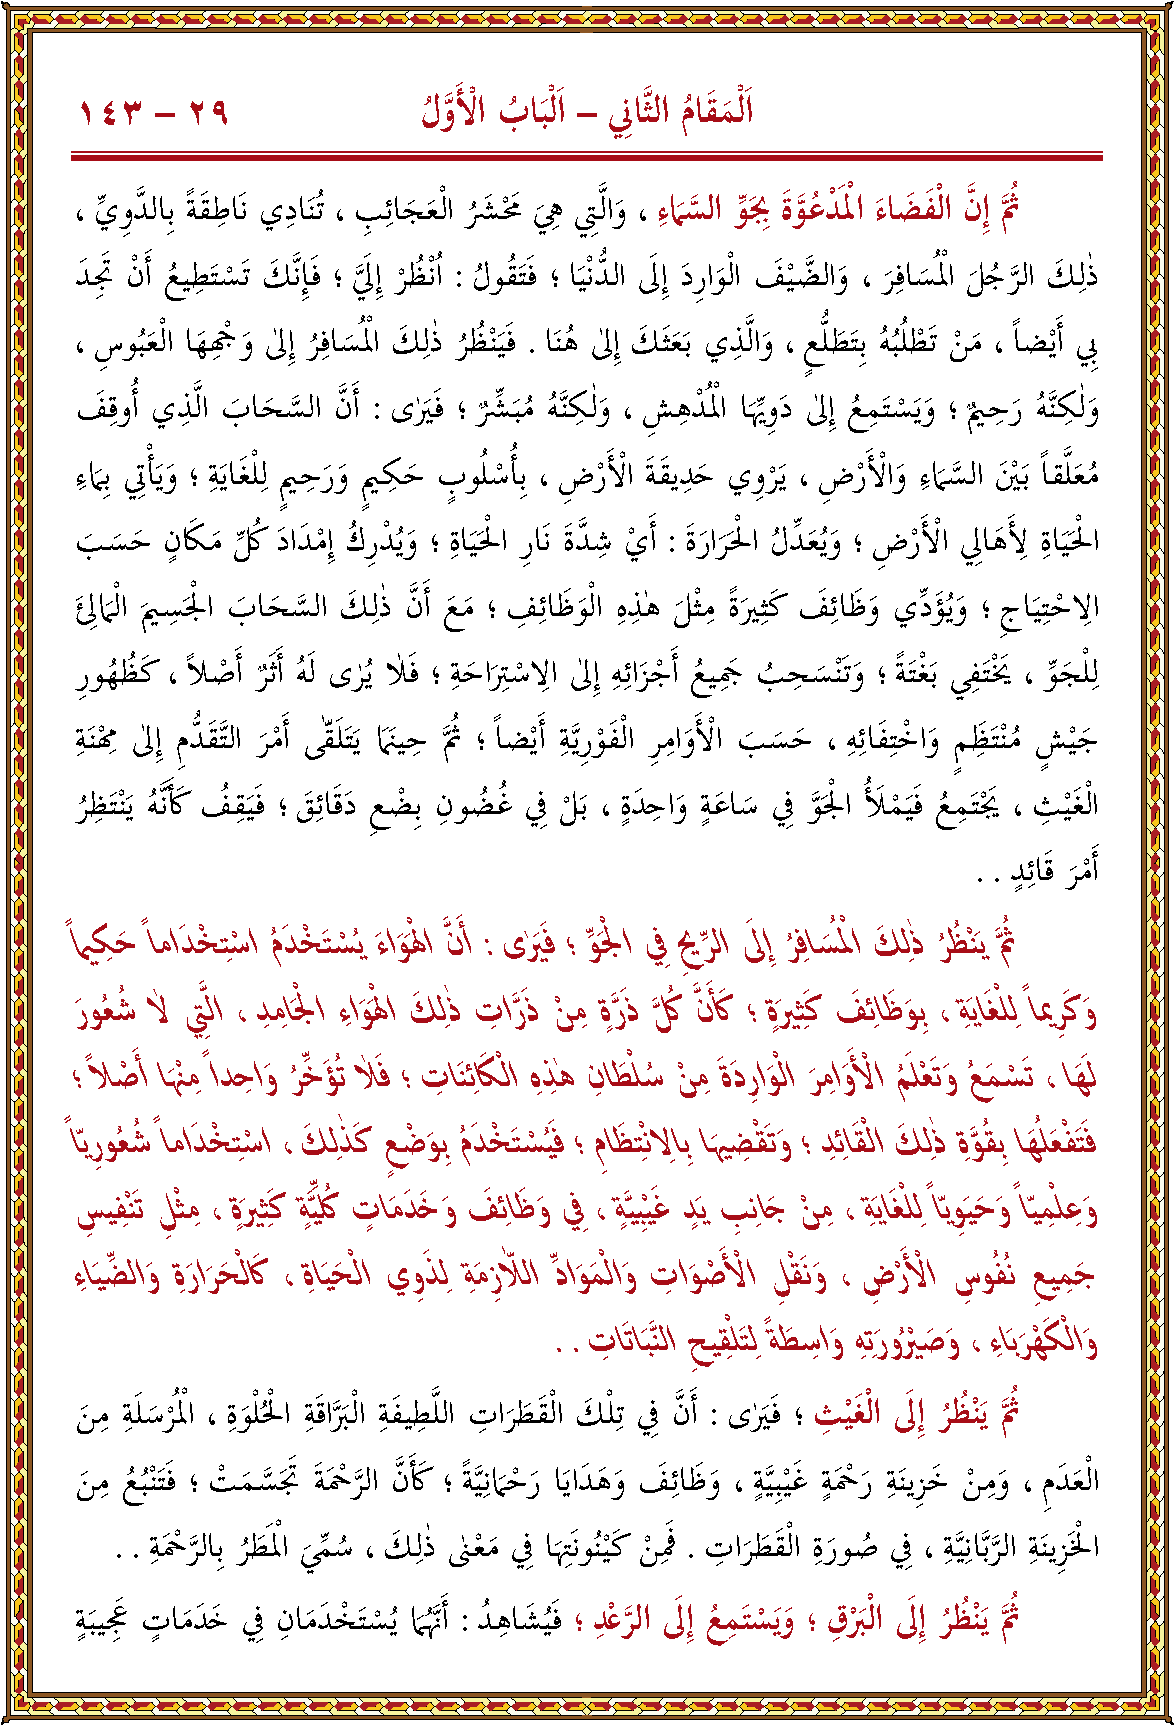 اَلْمَقَامُ الثَّانِي – اَلْبَابُ الْأَوَّلُ ٢٩ – ١٤٣
ثُمَّ إِنَّ الْفَضَاءَ الْمَدْعُوَّةَ بِجَوِّ السَّمَاءِ ، وَالَّتِي هِيَ مَحْشَرُ الْعَجَائِبِ ، تُنَادِي نَاطِقَةً بِالدَّوِيِّ ،
ذٰلِكَ الرَّجُلَ الْمُسَافِرَ ، وَالضَّيْفَ الْوَارِدَ إِلَى الدُّنْيَا ؛ فَتَقُولُ : اُنْظُرْ إِلَيَّ ؛ فَإِنَّكَ تَسْتَطِيعُ أَنْ تَجِدَ
بِي أَيْضاً ، مَنْ تَطْلُبُهُ بِتَطَلُّعٍ ، وَالَّذِي بَعَثَكَ إِلىٰ هُنَا . فَيَنْظُرُ ذٰلِكَ الْمُسَافِرُ إِلىٰ وَجْهِهَا الْعَبُوسِ ،
وَلٰكِنَّهُ رَحِيمٌ ؛ وَيَسْتَمِعُ إِلىٰ دَوِيِّهَا الْمُدْهِشِ ، وَلٰكِنَّهُ مُبَشِّرٌ ؛ فَيَرٰى : أَنَّ السَّحَابَ الَّذِي أُوقِفَ
مُعَلَّقاً بَيْنَ السَّمَاءِ وَالْأَرْضِ ، يَرْوِي حَدِيقَةَ الْأَرْضِ ، بِأُسْلُوبٍ حَكِيمٍ وَرَحِيمٍ لِلْغَايَةِ ؛ وَيَأْتِي بِمَاءِ
الْحَيَاةِ لِأَهَالِي الْأَرْضِ ؛ وَيُعَدِّلُ الْحَرَارَةَ : أَيْ شِدَّةَ نَارِ الْحَيَاةِ ؛ وَيُدْرِكُ إِمْدَادَ كُلِّ مَكَانٍ حَسَبَ
الِاحْتِيَاجِ ؛ وَيُؤَدِّي وَظَائِفَ كَثِيرَةً مِثْلَ هٰذِهِ الْوَظَائِفِ ؛ مَعَ أَنَّ ذٰلِكَ السَّحَابَ الْجَسِيمَ الْمَالِئَ
لِلْجَوِّ ، يَخْتَفِي بَغْتَةً ؛ وَتَنْسَحِبُ جَمِيعُ أَجْزَائِهِ إِلىٰ الِاسْتِرَاحَةِ ؛ فَلَا يُرٰى لَهُ أَثَرٌ أَصْلاً ، كَظُهُورِ
جَيْشٍ مُنْتَظِمٍ وَاخْتِفَائِهِ ، حَسَبَ الْأَوَامِرِ الْفَوْرِيَّةِ أَيْضاً ؛ ثُمَّ حِينَمَا يَتَلَقّٰى أَمْرَ التَّقَدُّمِ إِلىٰ مِهْنَةِ
الْغَيْثِ ، يَجْتَمِعُ فَيَمْلَأُ الْجَوَّ فِي سَاعَةٍ وَاحِدَةٍ ، بَلْ فِي غُضُونِ بِضْعِ دَقَائِقَ ؛ فَيَقِفُ كَأَنَّهُ يَنْتَظِرُ
أَمْرَ قَائِدٍ . .
ثُمَّ يَنْظُرُ ذٰلِكَ الْمُسَافِرُ إِلَى الرِّيحِ فِي الْجَوِّ ؛ فَيَرٰى : أَنَّ الْهَوَاءَ يُسْتَخْدَمُ اسْتِخْدَاماً حَكِيماً
وَكَرِيماً لِلْغَايَةِ ، بِوَظَائِفَ كَثِيرَةٍ ؛ كَأَنَّ كُلَّ ذَرَّةٍ مِنْ ذَرَّاتِ ذٰلِكَ الْهَوَاءِ الْجَامِدِ ، الَّتِي لَا شُعُورَ
لَهَا ، تَسْمَعُ وَتَعْلَمُ الْأَوَامِرَ الْوَارِدَةَ مِنْ سُلْطَانِ هٰذِهِ الْكَائِنَاتِ ؛ فَلَا تُؤَخِّرُ وَاحِداً مِنْهَا أَصْلاً ؛
فَتَفْعَلُهَا بِقُوَّةِ ذٰلِكَ الْقَائِدِ ؛ وَتَقْضِيهَا بِالِانْتِظَامِ ؛ فَيُسْتَخْدَمُ بِوَضْعٍ كَذٰلِكَ ، اسْتِخْدَاماً شُعُورِيّاً
وَعِلْمِيّاً وَحَيَوِيّاً لِلْغَايَةِ ، مِنْ جَانِبِ يَدٍ غَيْبِيَّةٍ ، فِي وَظَائِفَ وَخَدَمَاتٍ كُلِّيَّةٍ كَثِيرَةٍ ، مِثْلِ تَنْفِيسِ
جَمِيعِ نُفُوسِ الْأَرْضِ ، وَنَقْلِ الْأَصْوَاتِ وَالْمَوَادِّ اللَّازِمَةِ لِذَوِي الْحَيَاةِ ، كَالْحَرَارَةِ وَالضِّيَاءِ
وَالْكَهْرَبَاءِ ، وَصَيْرُورَتِهِ وَاسِطَةً لِتَلْقِيحِ النَّبَاتَاتِ . .
ثُمَّ يَنْظُرُ إِلَى الْغَيْثِ ؛ فَيَرٰى : أَنَّ فِي تِلْكَ الْقَطَرَاتِ اللَّطِيفَةِ الْبَرَّاقَةِ الْحُلْوَةِ ، الْمُرْسَلَةِ مِنَ
الْعَدَمِ ، وَمِنْ خَزِينَةِ رَحْمَةٍ غَيْبِيَّةٍ ، وَظَائِفَ وَهَدَايَا رَحْمَانِيَّةً ؛ كَأَنَّ الرَّحْمَةَ تَجَسَّمَتْ ؛ فَتَنْبُعُ مِنَ
الْخَزِينَةِ الرَّبَّانِيَّةِ ، فِي صُورَةِ الْقَطَرَاتِ . فَمِنْ كَيْنُونَتِهَا فِي مَعْنٰى ذٰلِكَ ، سُمِّيَ الْمَطَرُ بِالرَّحْمَةِ . .
ثُمَّ يَنْظُرُ إِلَى الْبَرْقِ ؛ وَيَسْتَمِعُ إِلَى الرَّعْدِ ؛ فَيُشَاهِدُ : أَنَّهُمَا يُسْتَخْدَمَانِ فِي خَدَمَاتٍ عَجِيبَةٍ